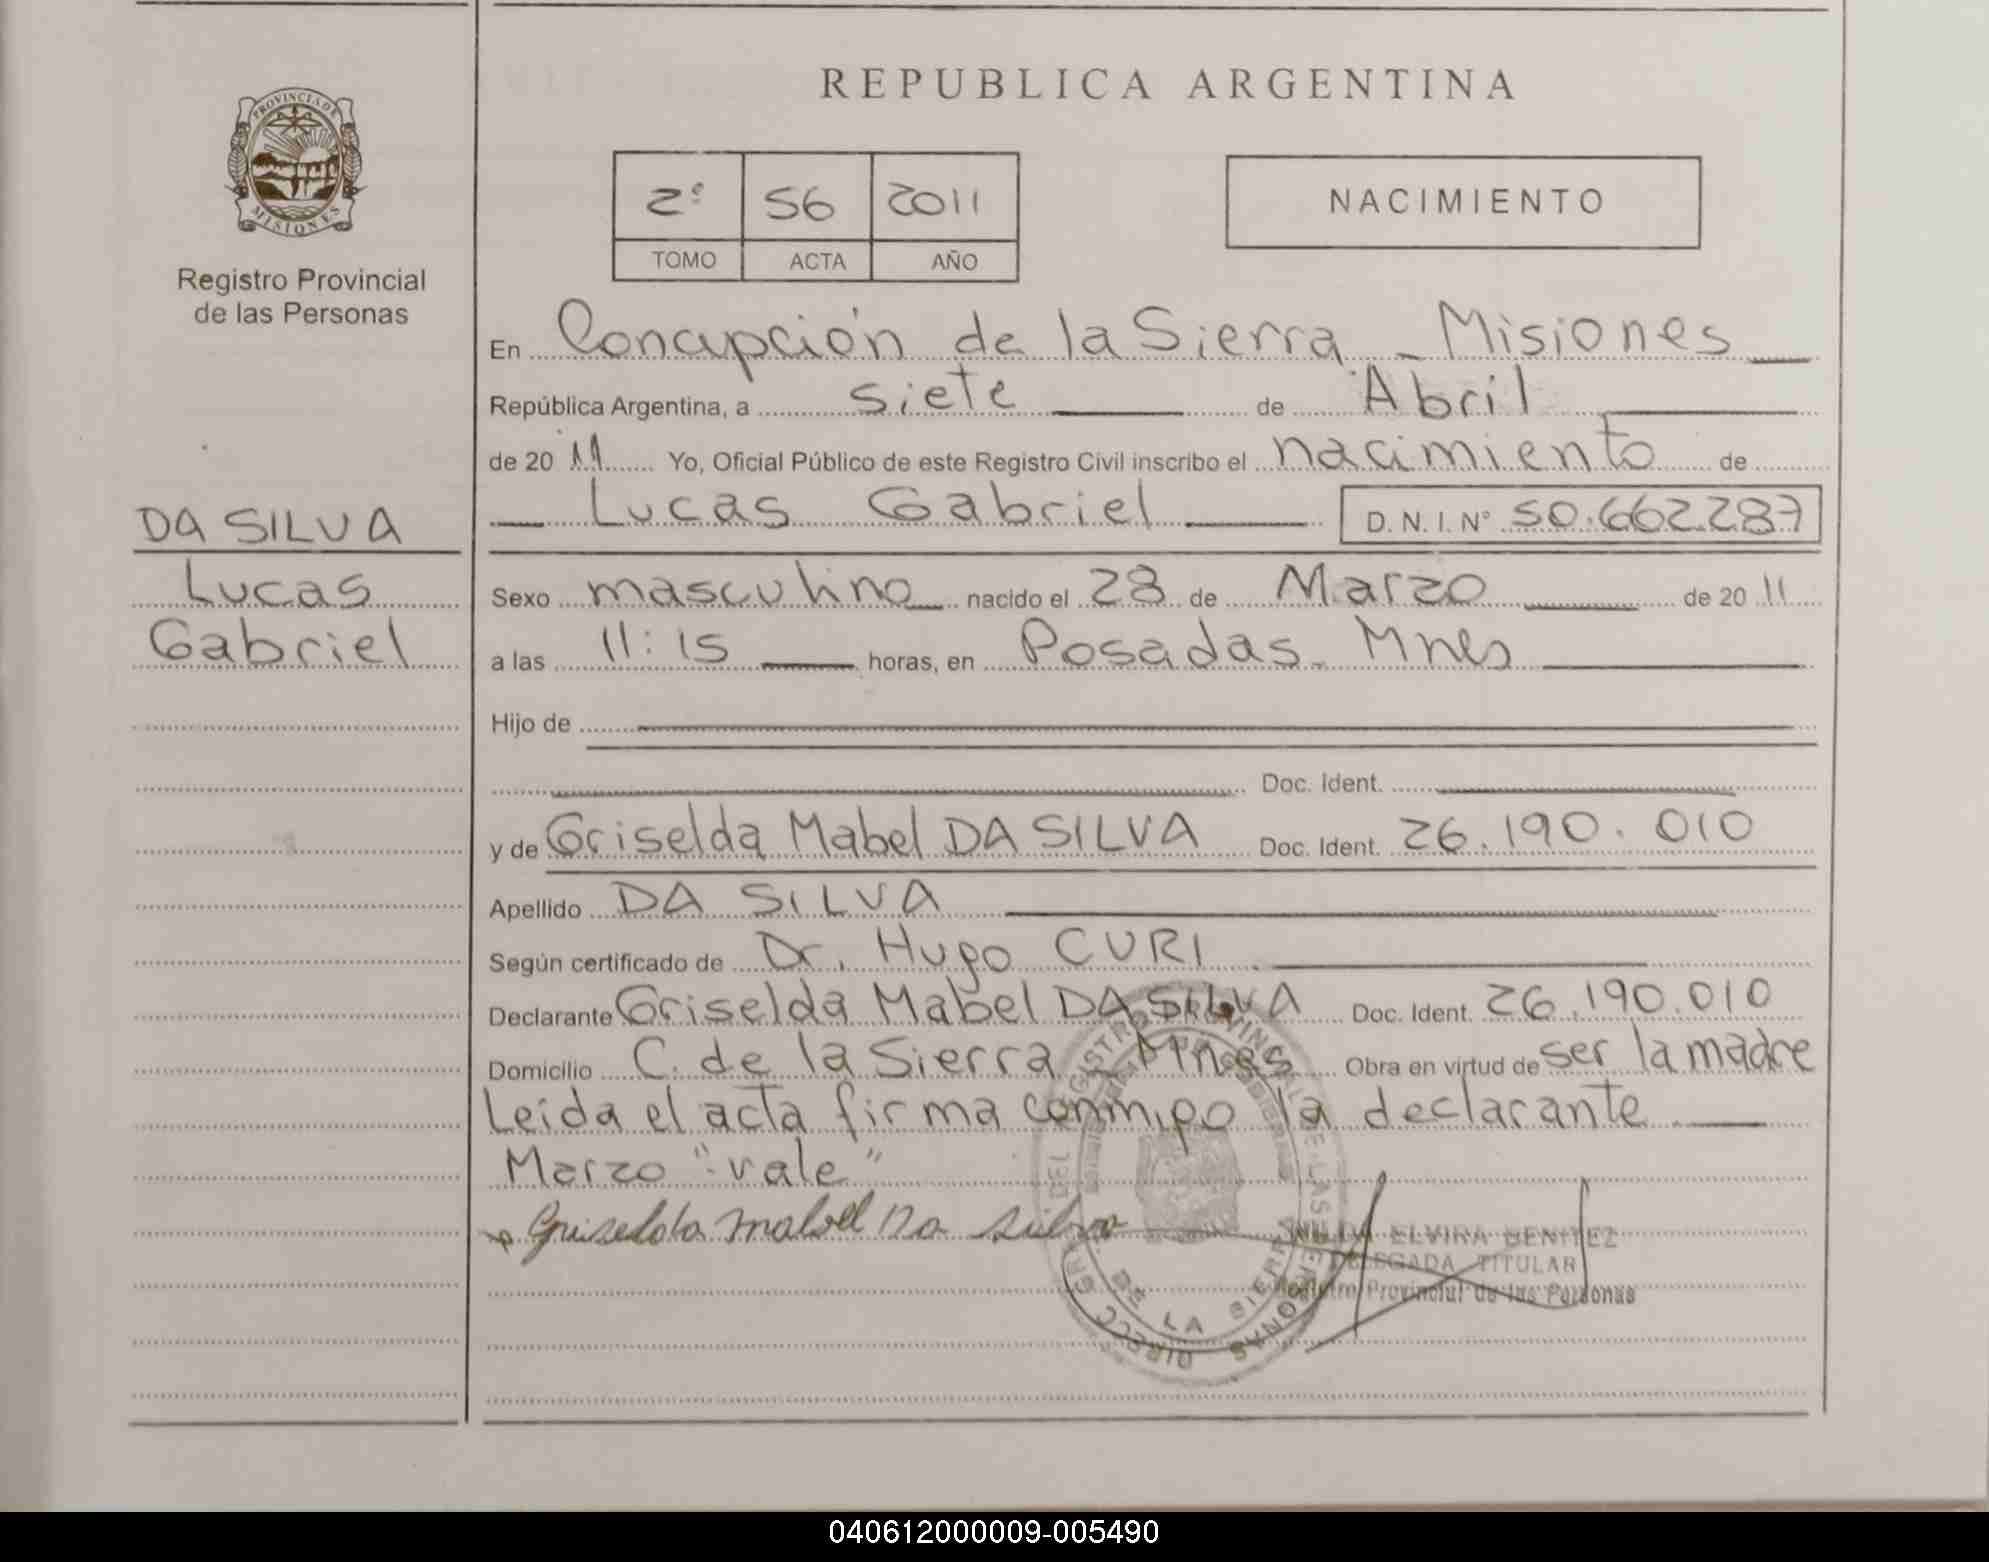 REPUBLICA ARGENTINA
PROVINCIA DE
MISIONES
Registro Provincial
de las Personas
2º 56 2011
TOMO ACTA AÑO
NACIMIENTO
DA SILVA
Lucas
Gabriel
En Concepción de la Sierra - Misiones
República Argentina, a siete de Abril
de 20 11 Yo, Oficial Público de este Registro Civil inscribo el nacimiento de
Lucas Gabriel D. N. I. Nº 50.662.287
Sexo masculino nacido el 28 de Marzo de 20 11
a las 11:15 horas, en Posadas - Mnes
Hijo de
Doc. Ident.
y de Griselda Mabel DA SILVA Doc. Ident. 26.190.010
Apellido DA SILVA
Según certificado de Dr. Hugo CURI
Declarante Griselda Mabel DA SILVA Doc. Ident. 26.190.010
Domicilio C. de la Sierra - Mnes Obra en virtud de ser la madre
Leída el acta firma conmigo la declarante
Marzo "vale"
Griselda Mabel Da Silva
ELVIRA BENITEZ
DELEGADA TITULAR
Registro Provincial de las Personas
040612000009-005490